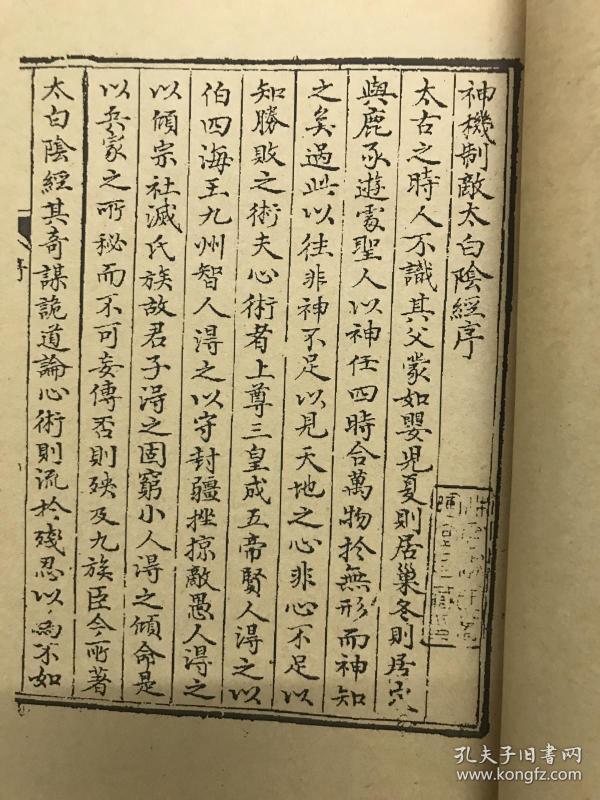 神機制敵太白陰經序
太古之時人不識其父蒙如嬰児夏則居巢冬則居穴
與鹿豕遊處聖人以神任四時合萬物扵無形而神知
之矣過此以往非神不足以見天地之心非心不足以
知勝敗之術夫心術者上尊三皇成五帝賢人淂之以
伯四海王九州智人淂之以守封疆挫掠敵愚人淂之
以傾宗社滅氏族故君子淂之固窮小人淂之傾命是
以兵家之所秘而不可妄傳否則殃及九族臣今所著
太白陰經其奇謀詭道論心術則流扵殘忍以為不如
序
孔夫子旧书网
www.kongfz.com